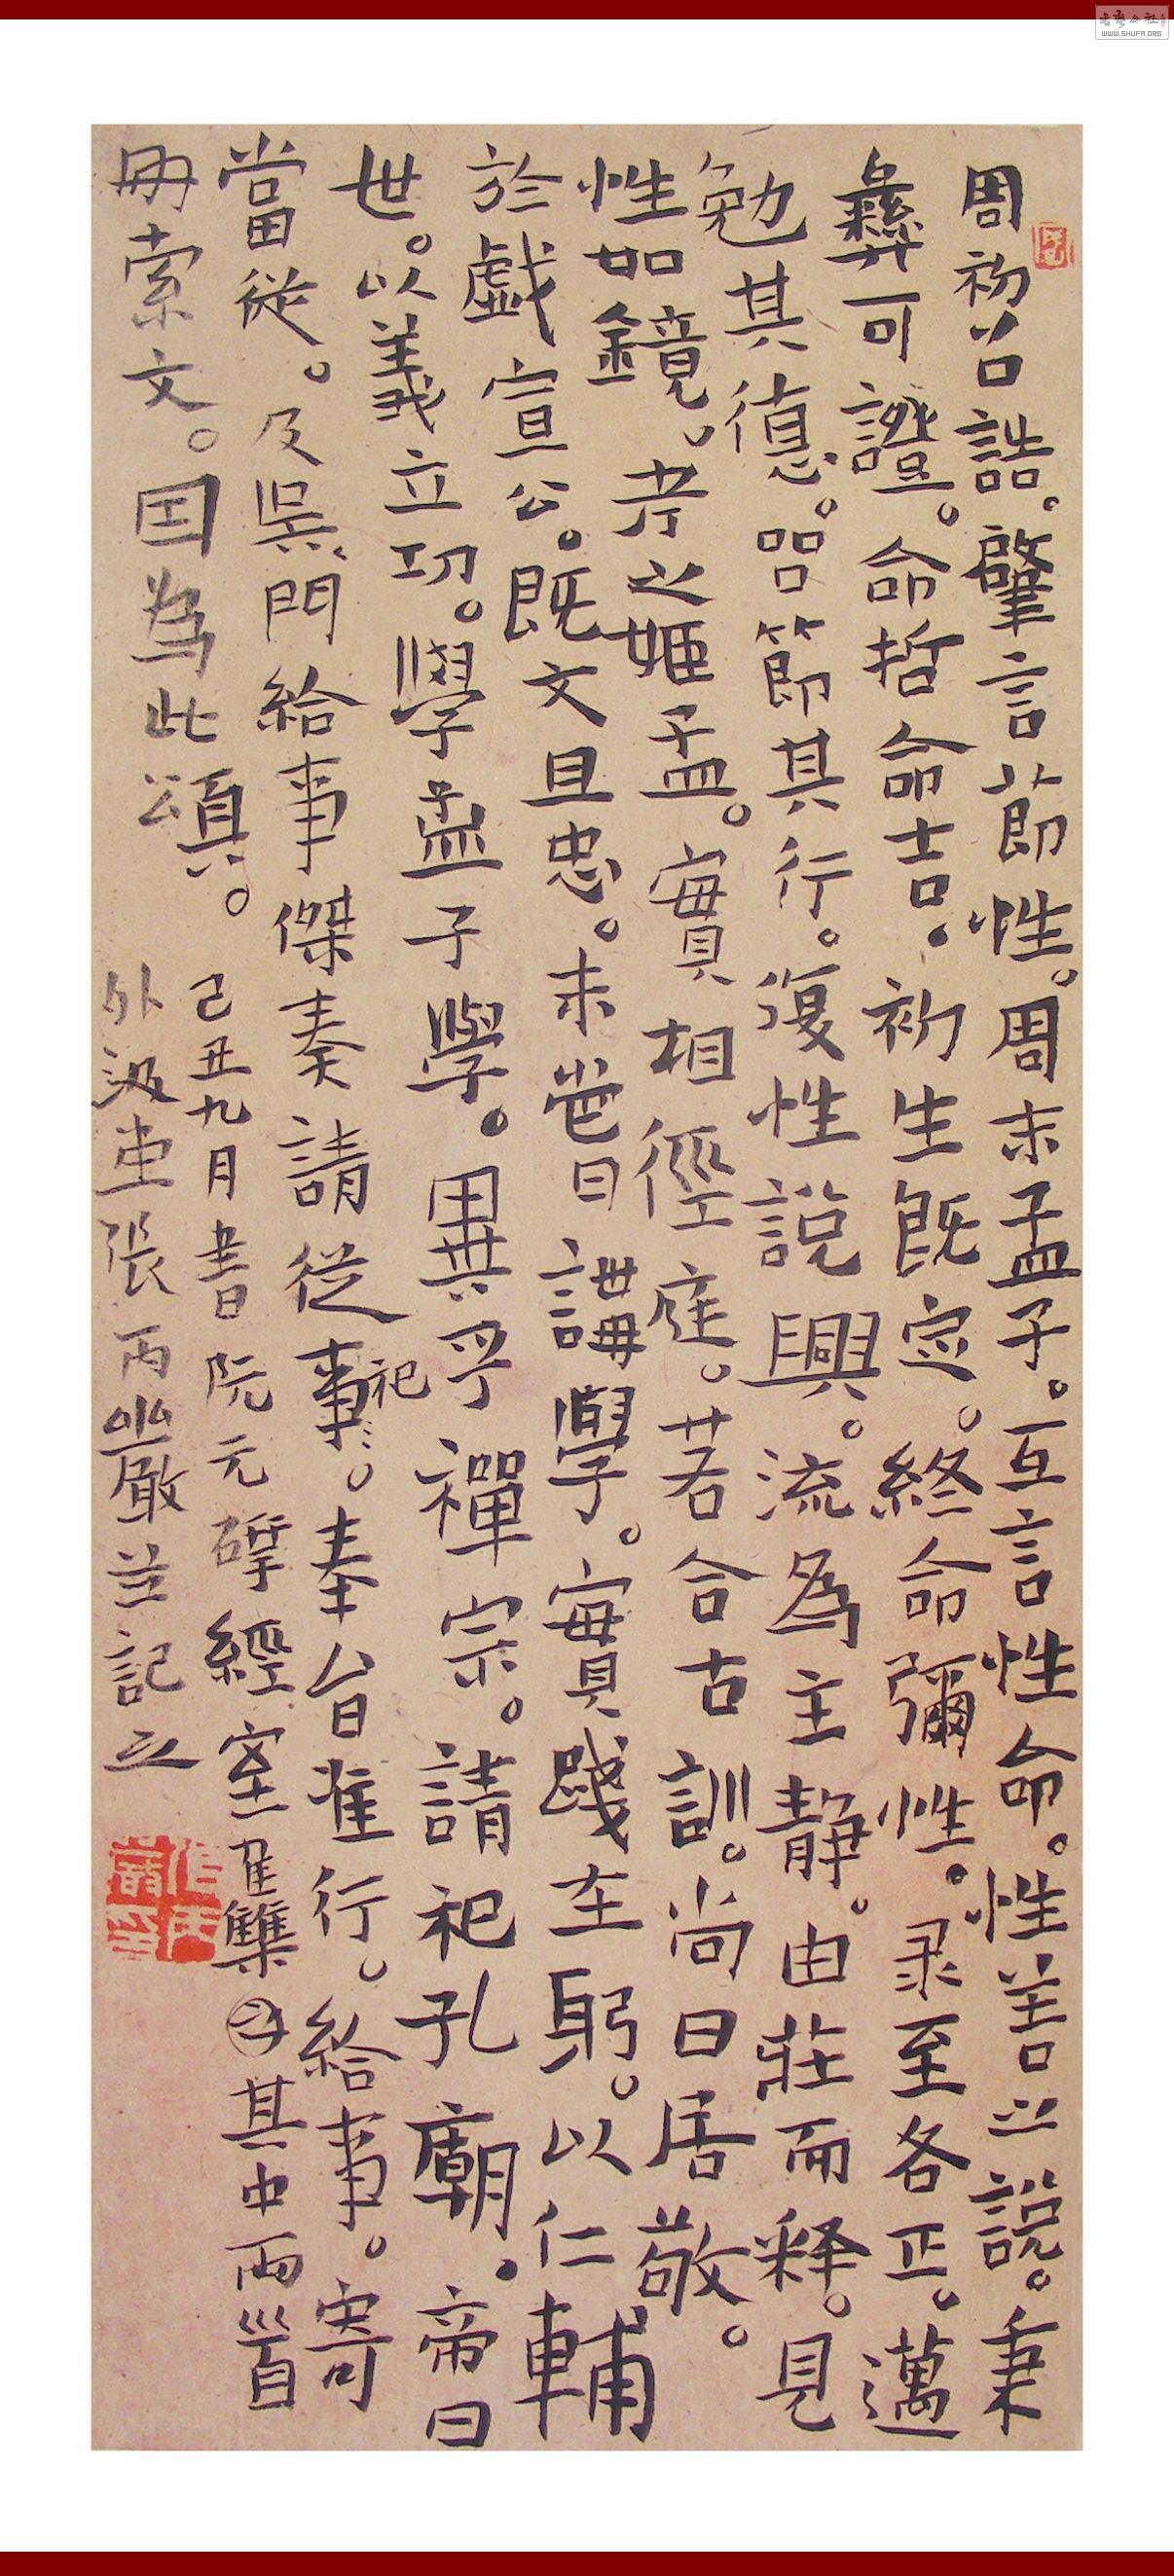 周初召誥。肇言節性。周末孟子。互言性命。性善之説。秉
彝可證。命哲命吉。初生既定。終命彌性。求至各正。邁
勉其德。品節其行。復性説興。流為主静。由莊而释。見
性如鏡。考之姬孟。實相徑庭。若合古訓。尚曰居敬。
於戯宣公。既文且忠。未嘗曰講學。實踐在躬。以仁輔
世。以義立功。學孟子學。異乎禪宗。請祀孔廟。帝曰
當從。及吳門給事傑奏請從事祀。奉旨准行。給事。寄
册索文。因為此頌。
己丑九月書阮元揅經室集其中兩首
外汲
張丙
巖并記之
WWW.SHUFA.ORG